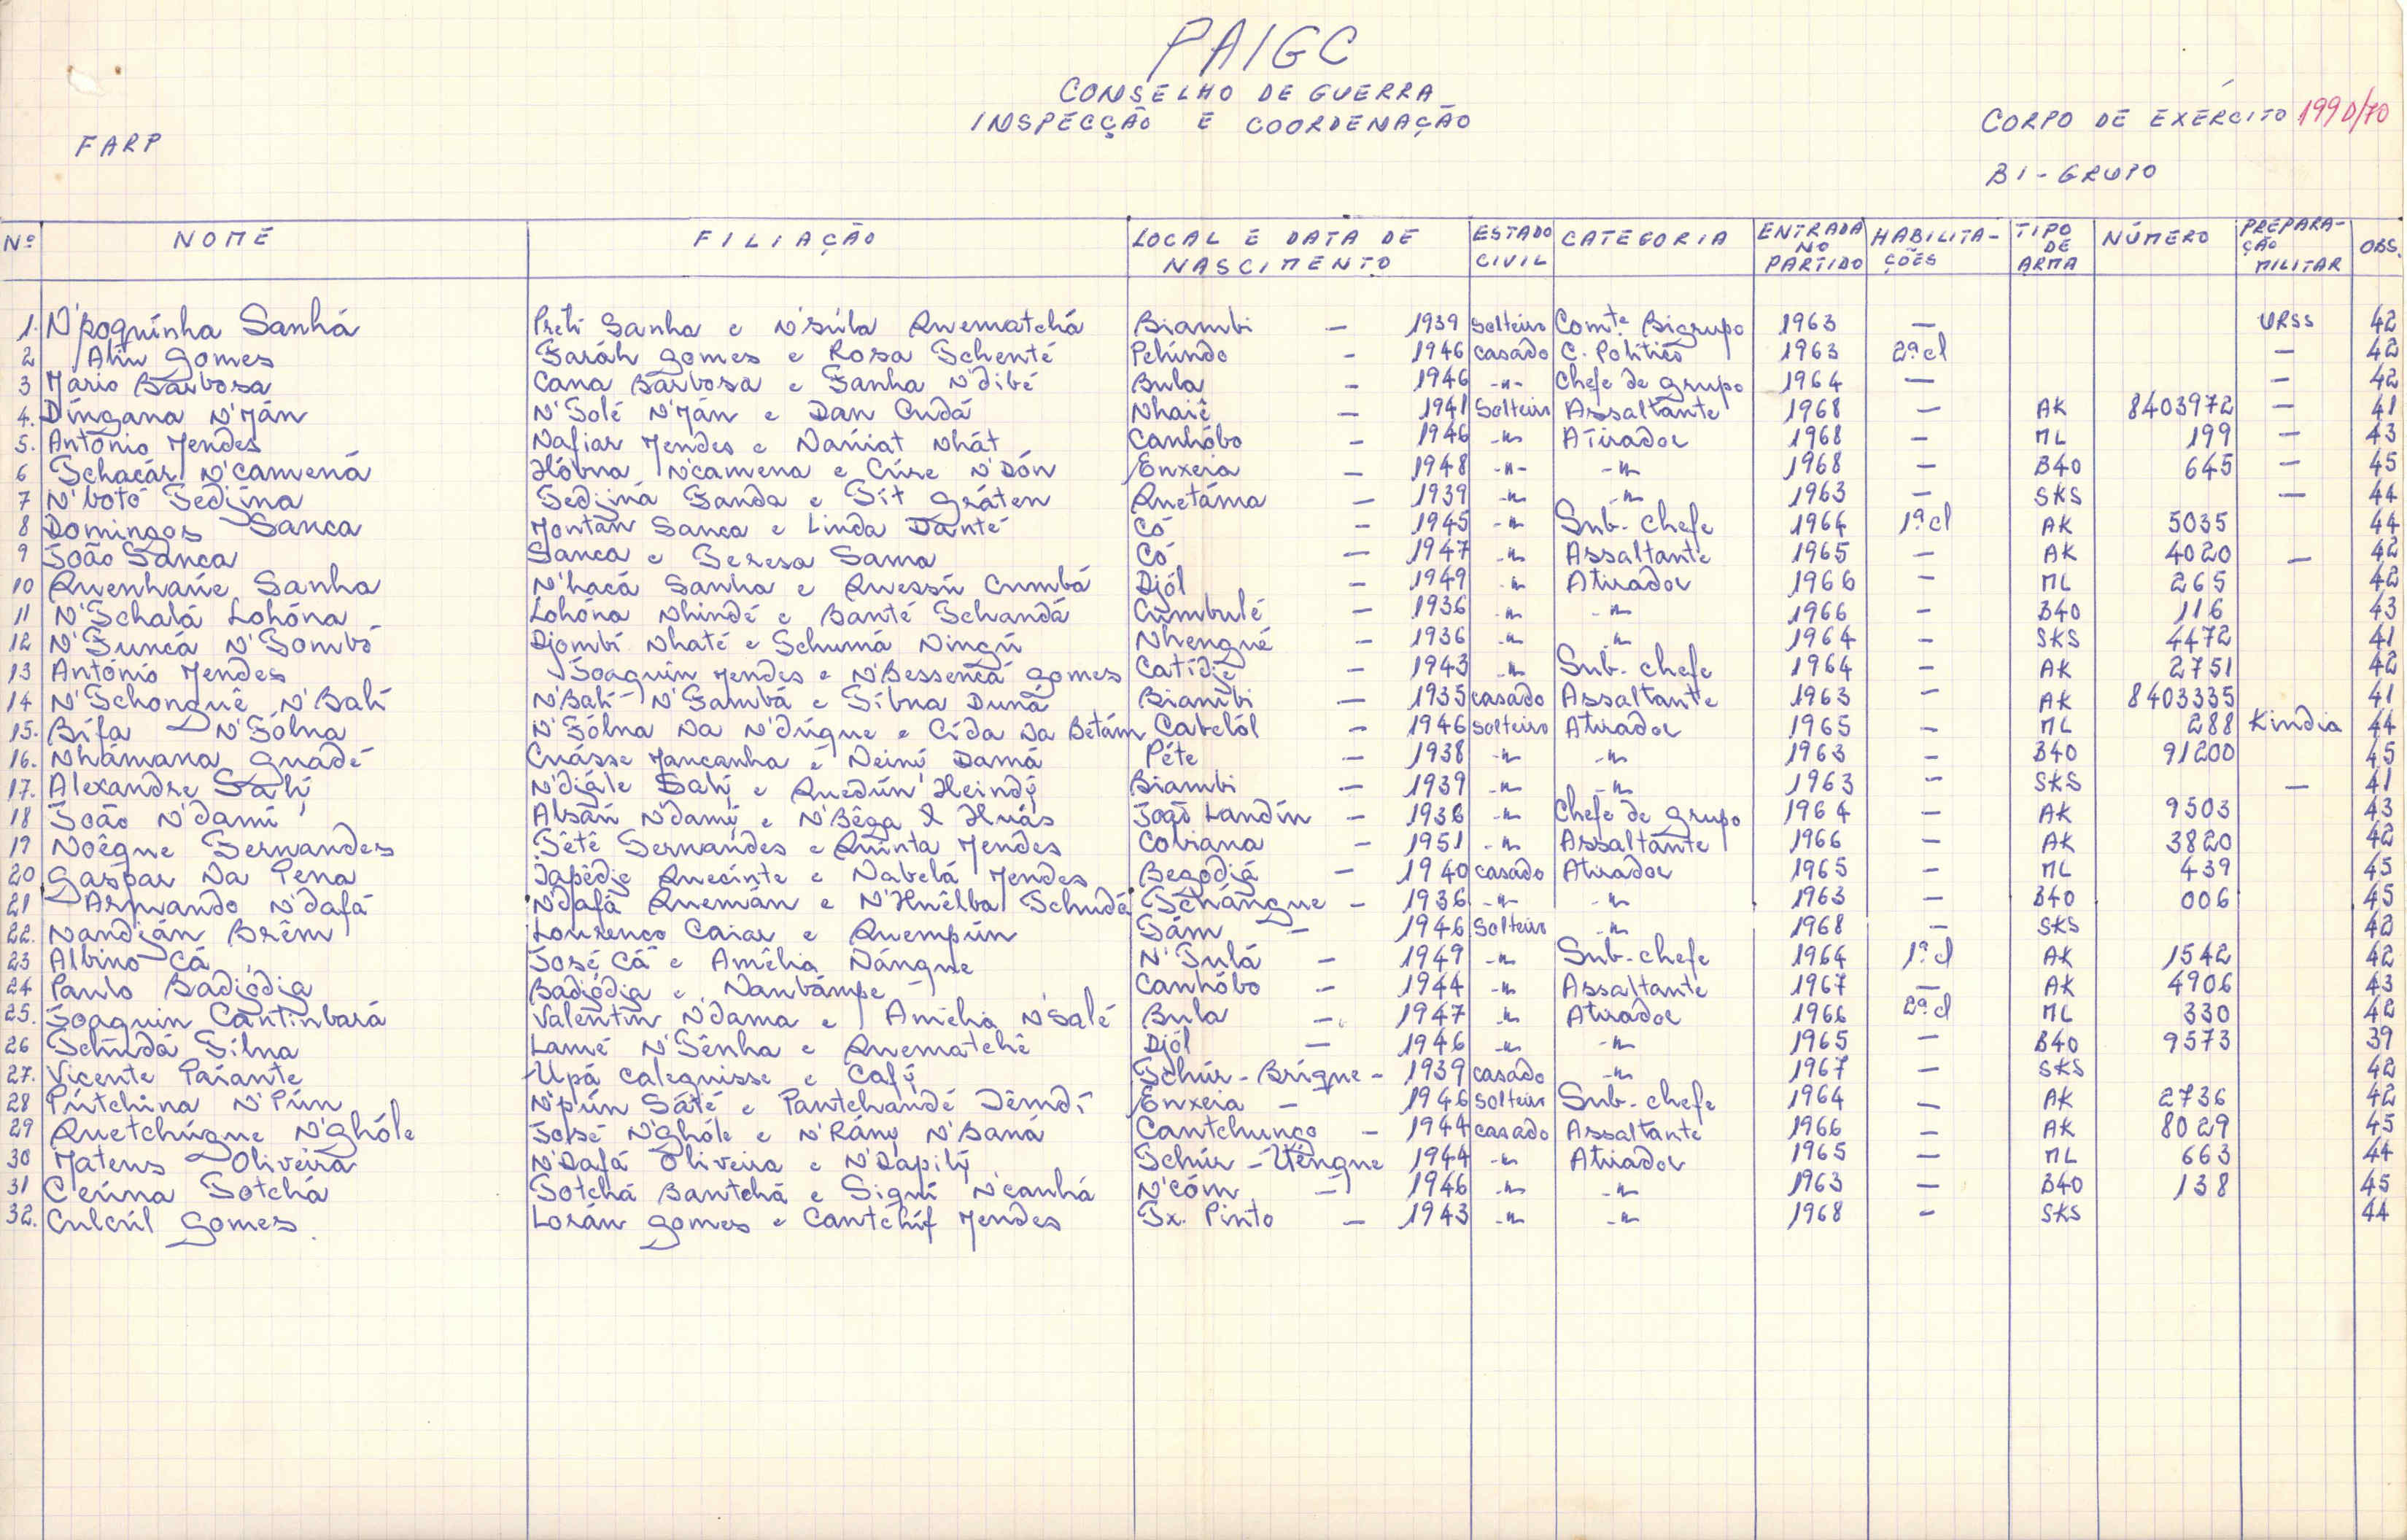 PAIGC
CONSELHO DE GUERRA
INSPECÇÃO E COORDENAÇÃO
CORPO DE EXÉRCITO 199D/70
FARP
BI-GRUPO
Nº NOME FILIAÇÃO LOCAL E DATA DE NASCIMENTO ESTADO CIVIL CATEGORIA ENTRADA NO PARTIDO HABILITA-ÇÕES TIPO DE ARMA NÚMERO PREPARA-ÇÃO MILITAR OBS.
1. N'poquinha Sanhá Preti Sanha e N'súla Quematchá Biambi — 1939 Solteiro Comte. Bigrupo 1963 — URSS 42
2 Aliu Gomes Taráh Gomes e Rosa Tchenté Pelundo - 1946 casado C. Politico 1963 2ª cl — 42
3 Mário Barbosa Cana Barbosa e Tanha N'dibé Bula - 1946 -"- Chefe de grupo 1964 — — 42
4. Dingana N'Mán N'Tolé N'Mán e Dan Cudá Nhaiê — 1941 Solteiro Assaltante 1968 — AK 8403972 — 41
5. António Mendes Nafiar Mendes e Naniat Nhát Canhóbo - 1946 -"- Atirador 1968 - ML 199 — 43
6 Tchacár N'camená Hóbna N'camena e Cúre N'Dón Enxeia — 1948 -"- -"- 1968 — B40 645 — 45
7 N'botó Tedijna Tedijná Tanda e Tit Gráten Quetáma — 1939 -"- -"- 1963 — SKS — 44
8 Domingos Sanca Montan Sanca e Linda Danté Có - 1945 -"- Sub-chefe 1964 1ª cl AK 5035 44
9 João Sanca Sanca e Teresa Sama Có — 1947 -"- Assaltante 1965 — AK 4020 — 42
10 Quenhaúe Sanha N'hacá Sanha e Quessú Cumbá Djól — 1949 -"- Atirador 1966 - ML 265 42
11 N'Tchalá Lohóna Lohóna Nhindé e Banté Tchandá Cumbulé — 1936 -"- -"- 1966 - B40 116 43
12 N'Tuncá N'Tombó Djombí Nhaté e Tchumá Ningú Nhengué - 1936 -"- -"- 1964 - SKS 4472 41
13 António Mendes Joaquin Mendes e N'Bessencá Gomes Catidje - 1943 -"- Sub-chefe 1964 - AK 2751 42
14 N'Tchonguê N'Bali N'Bali N'Tambá e Tibna Duná Biambi — 1935 casado Assaltante 1963 - AK 8403335 41
15. Bifa N'Tólna N'Tólna Na N'dúgue e Cida Na Betám Cabelól - 1946 Solteiro Atirador 1965 - ML 288 Kindia 44
16. Nhámana Guadé Cuásse Mancanha e Neiny Damá Péte - 1938 -"- -"- 1963 - B40 91200 45
17. Alexandre Salý N'diále Salý e Quedún Heindý Biambi - 1939 -"- -"- 1963 - SKS — 41
18 João N'dami Absáu N'damý e N'Bêga Huás João Landin — 1936 -"- Chefe de grupo 1964 - AK 9503 43
19 Noêgue Fernandes Tété Fernandes e Quinta Mendes Cobiana — 1951 -"- Assaltante 1966 - AK 3820 42
20 Gaspar Da Pena Japêdje Quecinte e Nabelá Mendes Begodjá — 1940 casado Atirador 1965 - ML 439 45
21 Armando N'dafá N'dafá Quemán e N'Huêlba Tchudá Tchángue - 1936 -"- -"- 1963 - B40 006 45
22. Nandján Brêm Lourenço Caiar e Quempún Tám — 1946 Solteiro -"- 1968 - SKS 42
23 Albino Cá José Cá e Amélia Nángue N'Tulá - 1949 -"- Sub-chefe 1964 1ª cl AK 1542 42
24 Paulo Badjódja Badjódja e Nanbámpe Canhóbo - 1944 -"- Assaltante 1967 — AK 4906 43
25. Joaquin Cantinbará Valentin N'dama e Amélia N'salé Bula — 1947 -"- Atirador 1966 2ª cl ML 330 42
26 Tchudá Tilna Lamé N'Tênha e Quematchê Djól — 1946 -"- -"- 1965 — B40 9573 39
27. Vicente Paiante Upá Calequisse e Cafý Tchúr-Brique - 1939 casado -"- 1967 - SKS 42
28 Pútchina N'Pún N'pún Sáté e Pantchandé Dêmdi Enxeia — 1946 Solteiro Sub-chefe 1964 — AK 2736 42
29 Quetchúgue N'Ghóle José N'Ghóle e N'Rány N'Baná Cantchungo - 1944 casado Assaltante 1966 - AK 8029 45
30 Mateus Oliveira N'Dafá Oliveira e N'Dapilý Tchúr-Uténgue 1944 -"- Atirador 1965 - ML 663 44
31 Ceúna Totchá Totchá Bantchá e Siguí N'canhá N'cóm — 1946 -"- -"- 1963 - B40 138 45
32. Culcúl Gomes Lorán Gomes e Cantchíf Mendes Tx. Pinto — 1943 -"- -"- 1968 - SKS 44